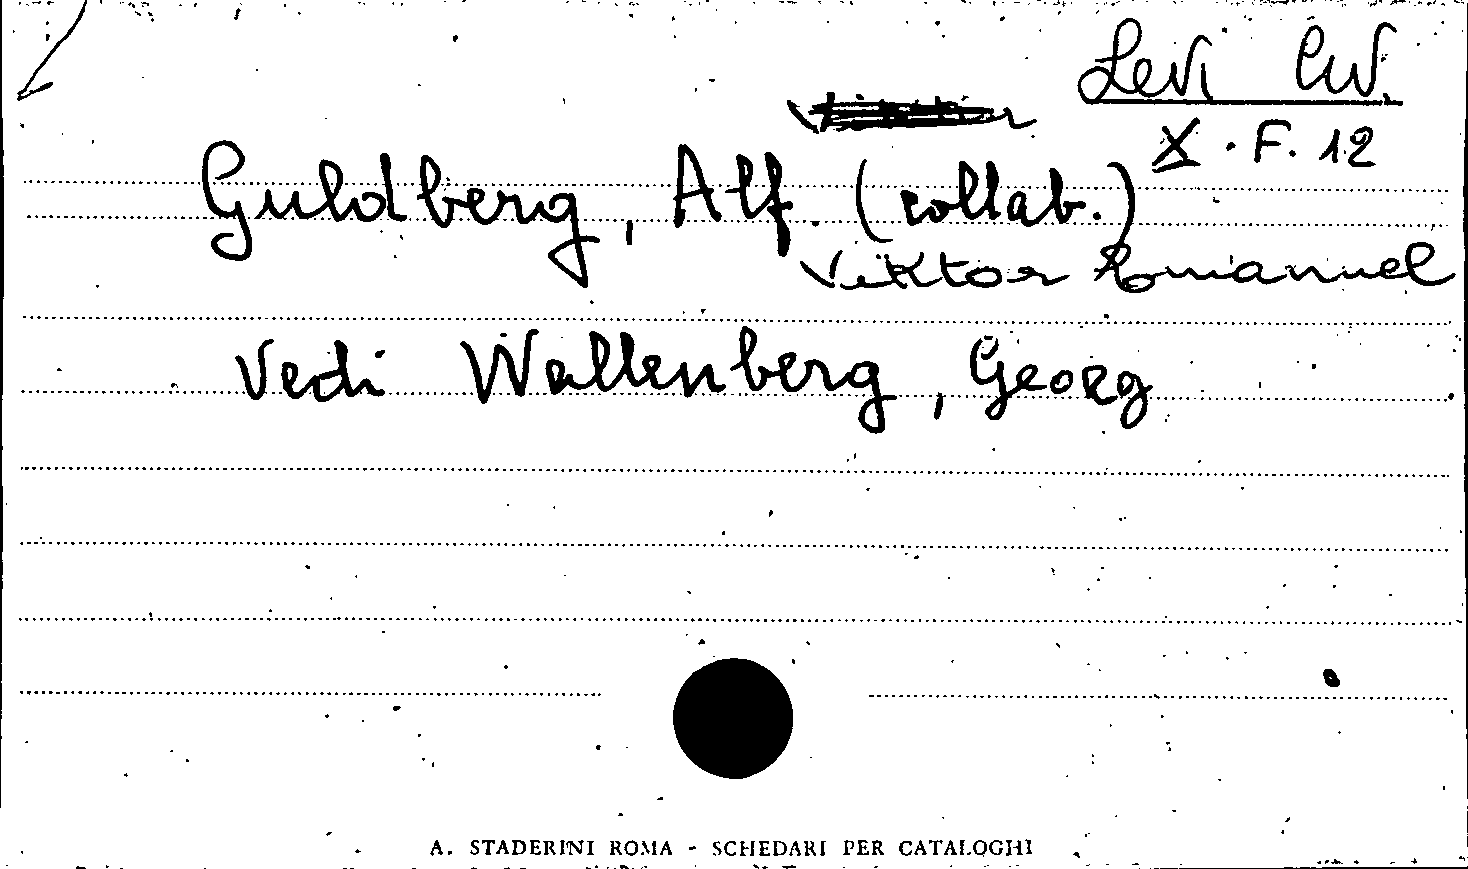 Levi Civ.
X. F. 12
Guldberg, Alf. (collab.)
Viktor Romanuel
Vedi Wallenberg, Georg
A. STADERINI ROMA - SCHEDARI PER CATALOGHI